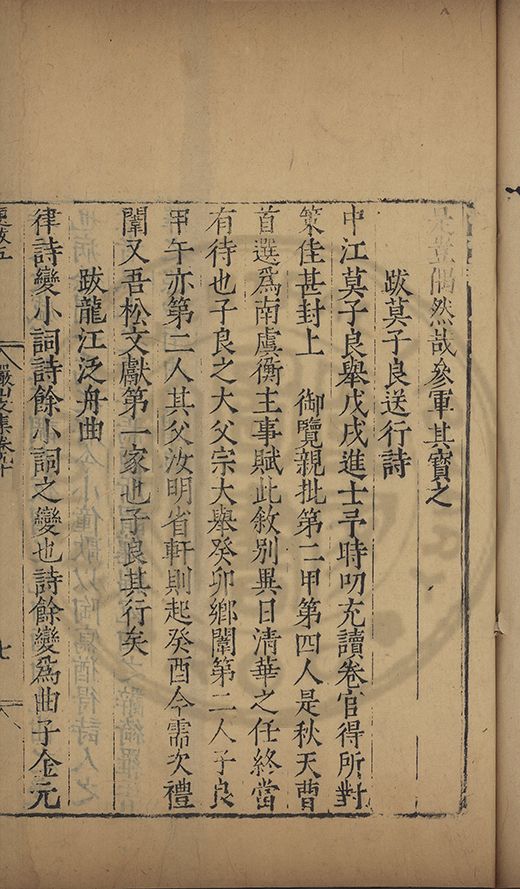 豈偶然哉參軍其寶之
跋莫子良送行詩
中江莫子良舉戊戌進士予時叨充讀卷官得所對
策佳甚封上　御覽親批第二甲第四人是秋天曹
首選爲南虞衡主事賦此敘別異日清華之任終當
有待也子良之大父宗大舉癸卯鄉闈第二人子良
甲午亦第二人其父汝明省軒則起癸酉今需次禮
闈又吾松文獻第一家也子良其行矣
跋龍江泛舟曲
律詩變小詞詩餘小詞之變也詩餘變爲曲子金元
七